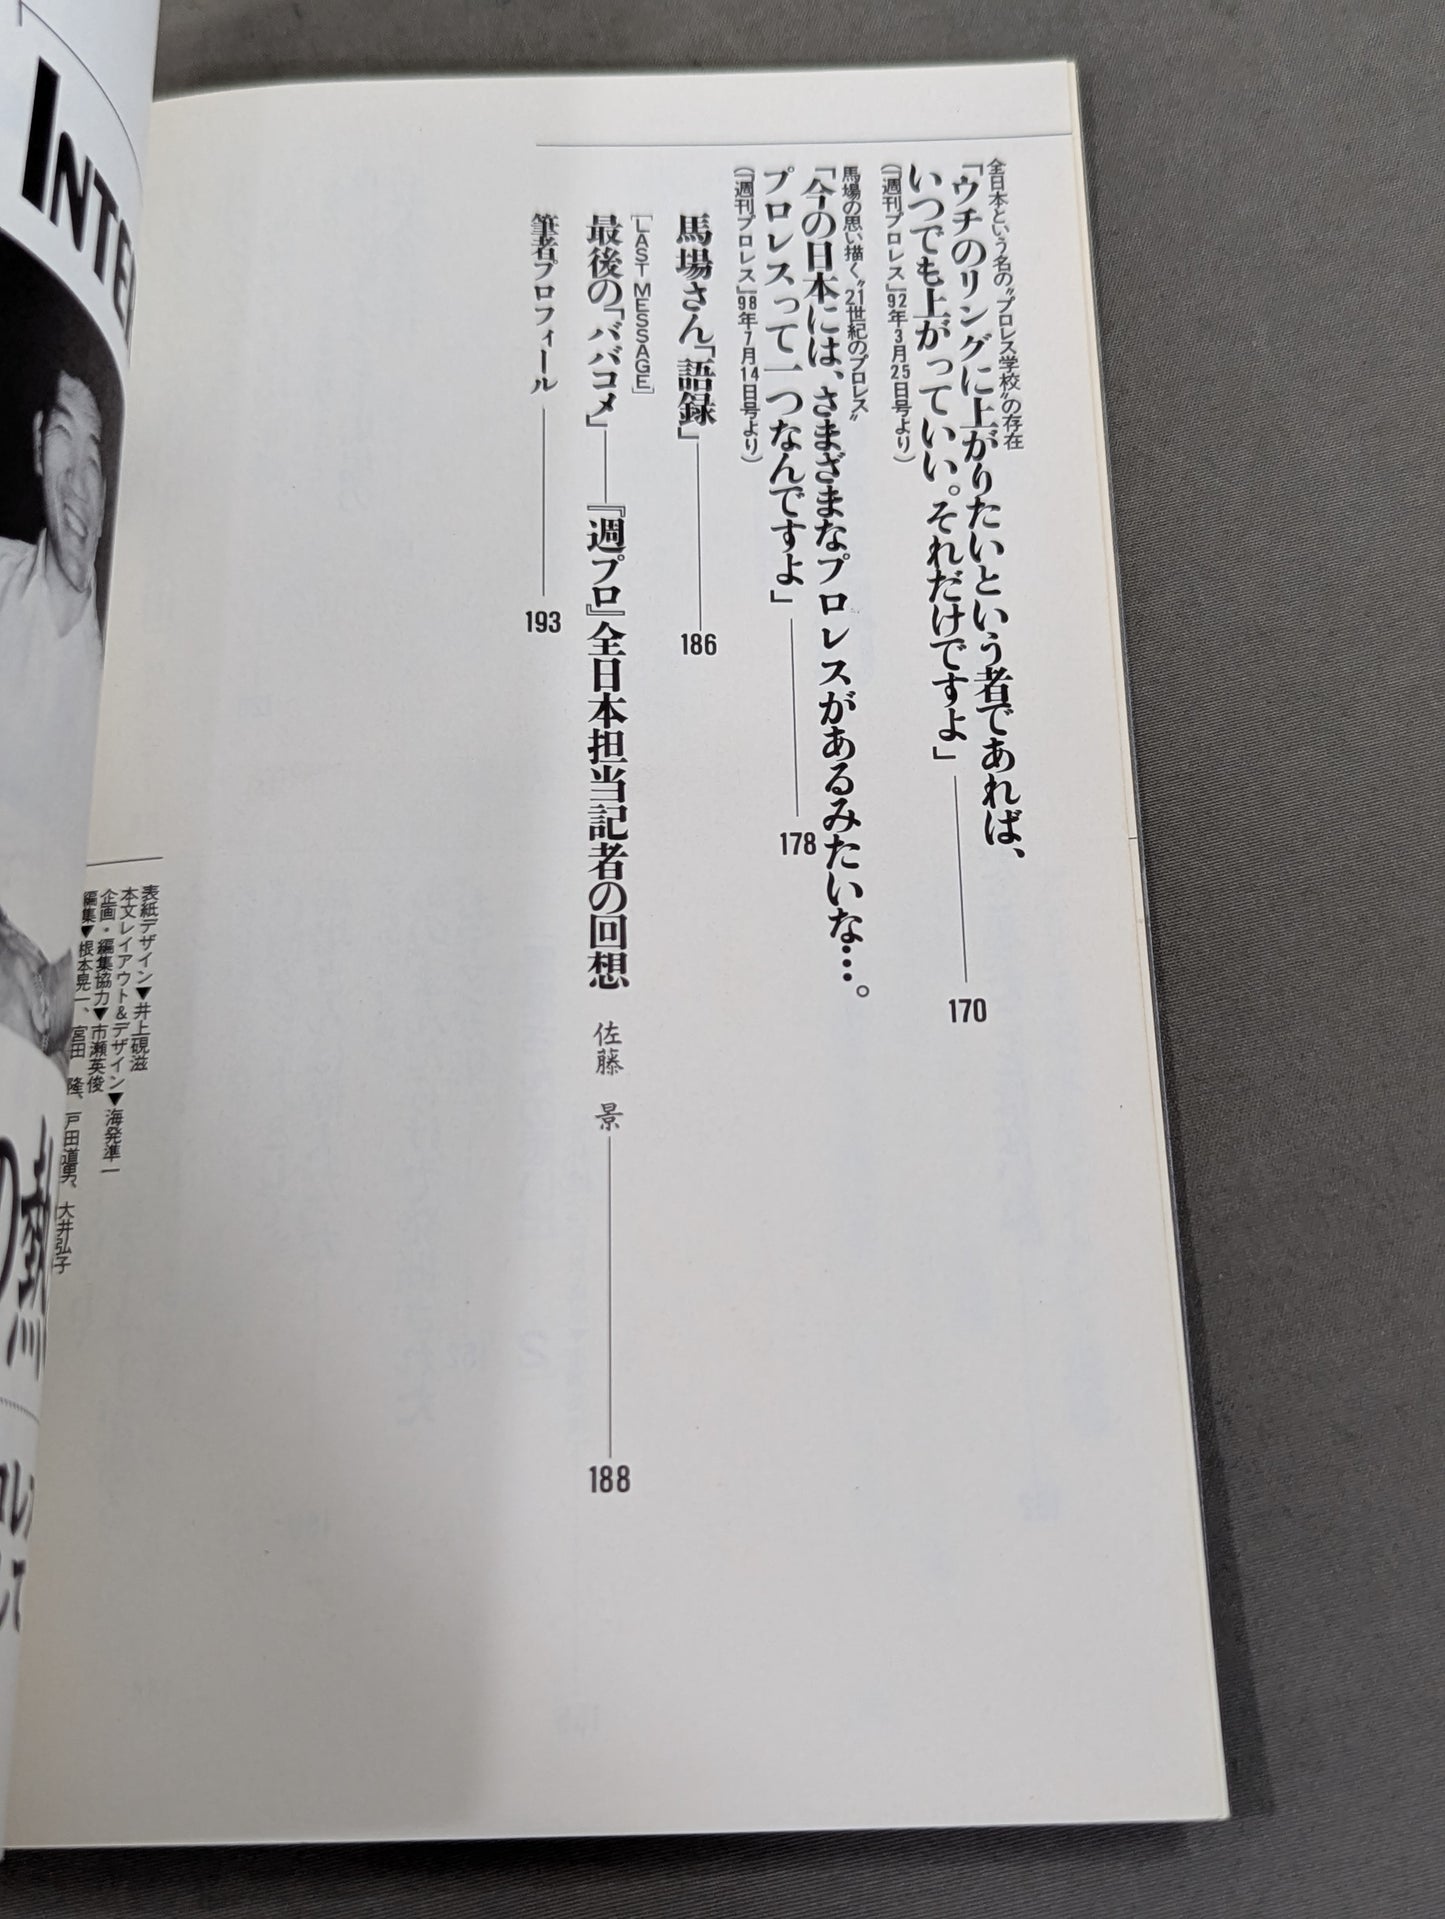 全日本という名の〝プロレス学校〟の存在
「ウチのリングに上がりたいという者であれば、
いつでも上がっていい。それだけですよ」 170
（『週刊プロレス』92年3月25日号より）
馬場の思い描く〝21世紀のプロレス〟
「今の日本には、さまざまなプロレスがあるみたいな…。
プロレスって一つなんですよ」 178
（『週刊プロレス』98年7月14日号より）
馬場さん「語録」 186
［LAST MESSAGE］
最後の「ババコメ」──『週プロ』全日本担当記者の回想 佐藤 景 188
筆者プロフィール 193
表紙デザイン▼井上硯滋
本文レイアウト&デザイン▼海発準一
企画・編集協力▼市瀬英俊
編集▼根本晃一、宮田 隆、戸田道男、大井弘子
INTE
の熱